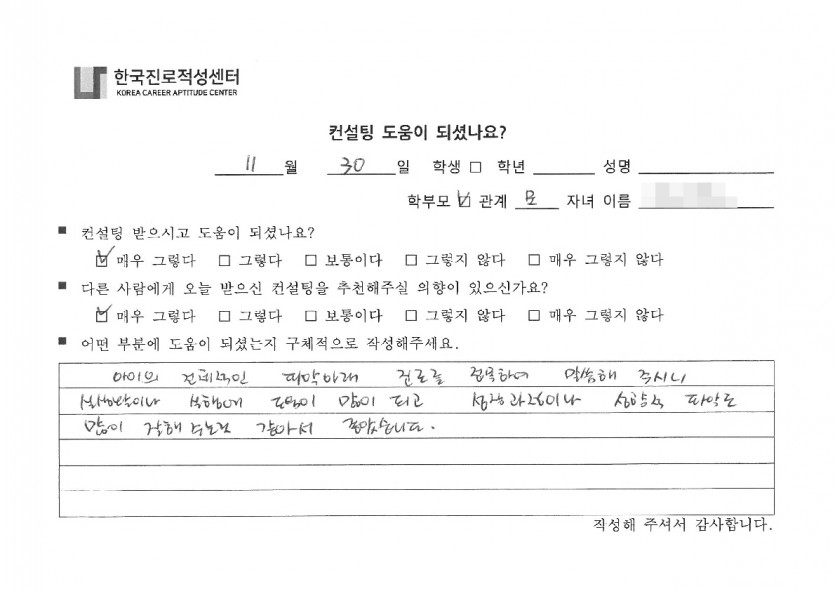 한국진로적성센터
KOREA CAREER APTITUDE CENTER
컨설팅 도움이 되셨나요?
11 월 30 일 학생 □ 학년 성명
학부모 ☑ 관계 모 자녀 이름
■ 컨설팅 받으시고 도움이 되셨나요?
☑ 매우 그렇다 □ 그렇다 □ 보통이다 □ 그렇지 않다 □ 매우 그렇지 않다
■ 다른 사람에게 오늘 받으신 컨설팅을 추천해주실 의향이 있으신가요?
☑ 매우 그렇다 □ 그렇다 □ 보통이다 □ 그렇지 않다 □ 매우 그렇지 않다
■ 어떤 부분에 도움이 되셨는지 구체적으로 작성해주세요.
아이의 전체적인 파악아래 진로를 접목하여 말씀해 주시니
도움이 많이 되고 성장과정이나 파악도
많이 잘해 주는것 같아서 좋았습니다.
작성해 주셔서 감사합니다.